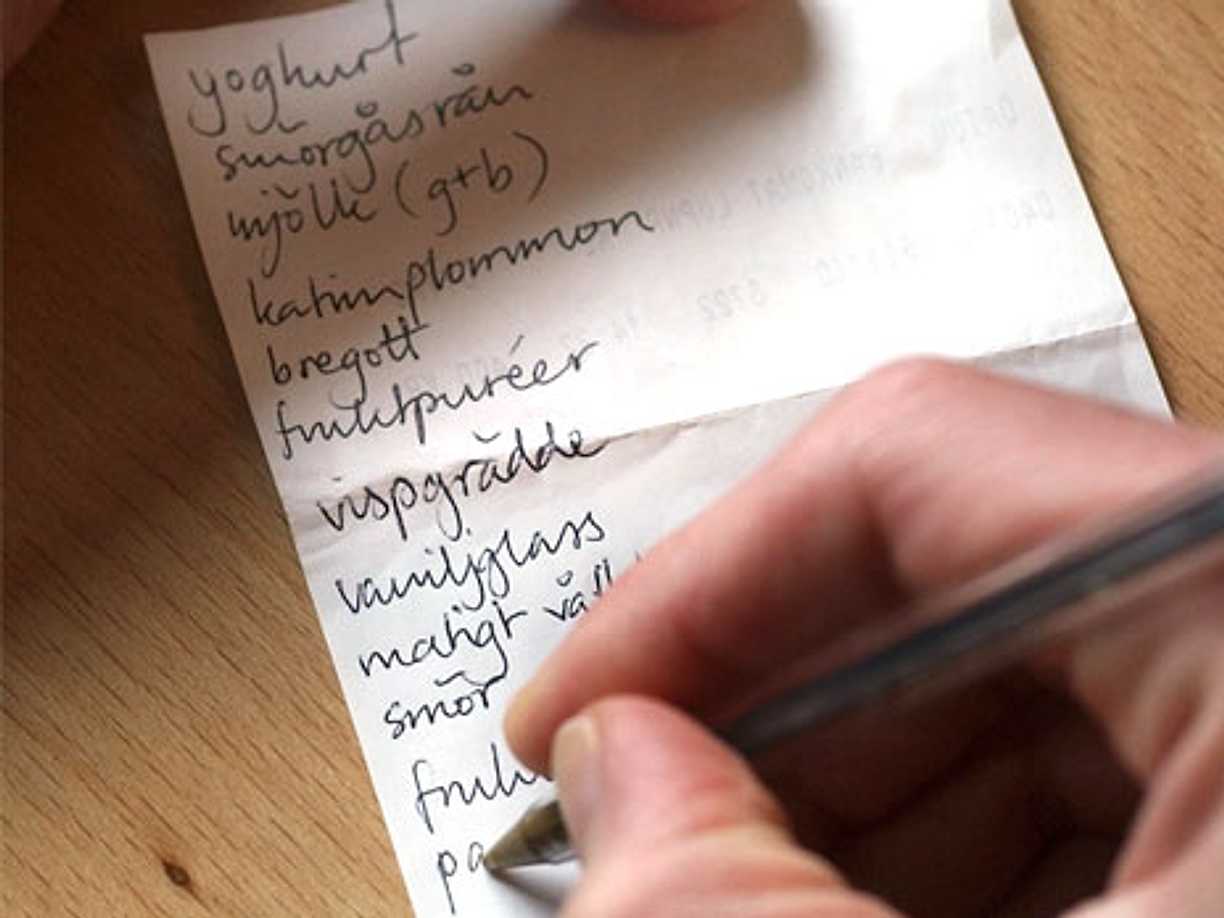 yoghurt
smörgåsrån
mjölk (g+b)
katrinplommon
bregott
fruktpuréer
vispgrädde
vaniljglass
matigt
smör